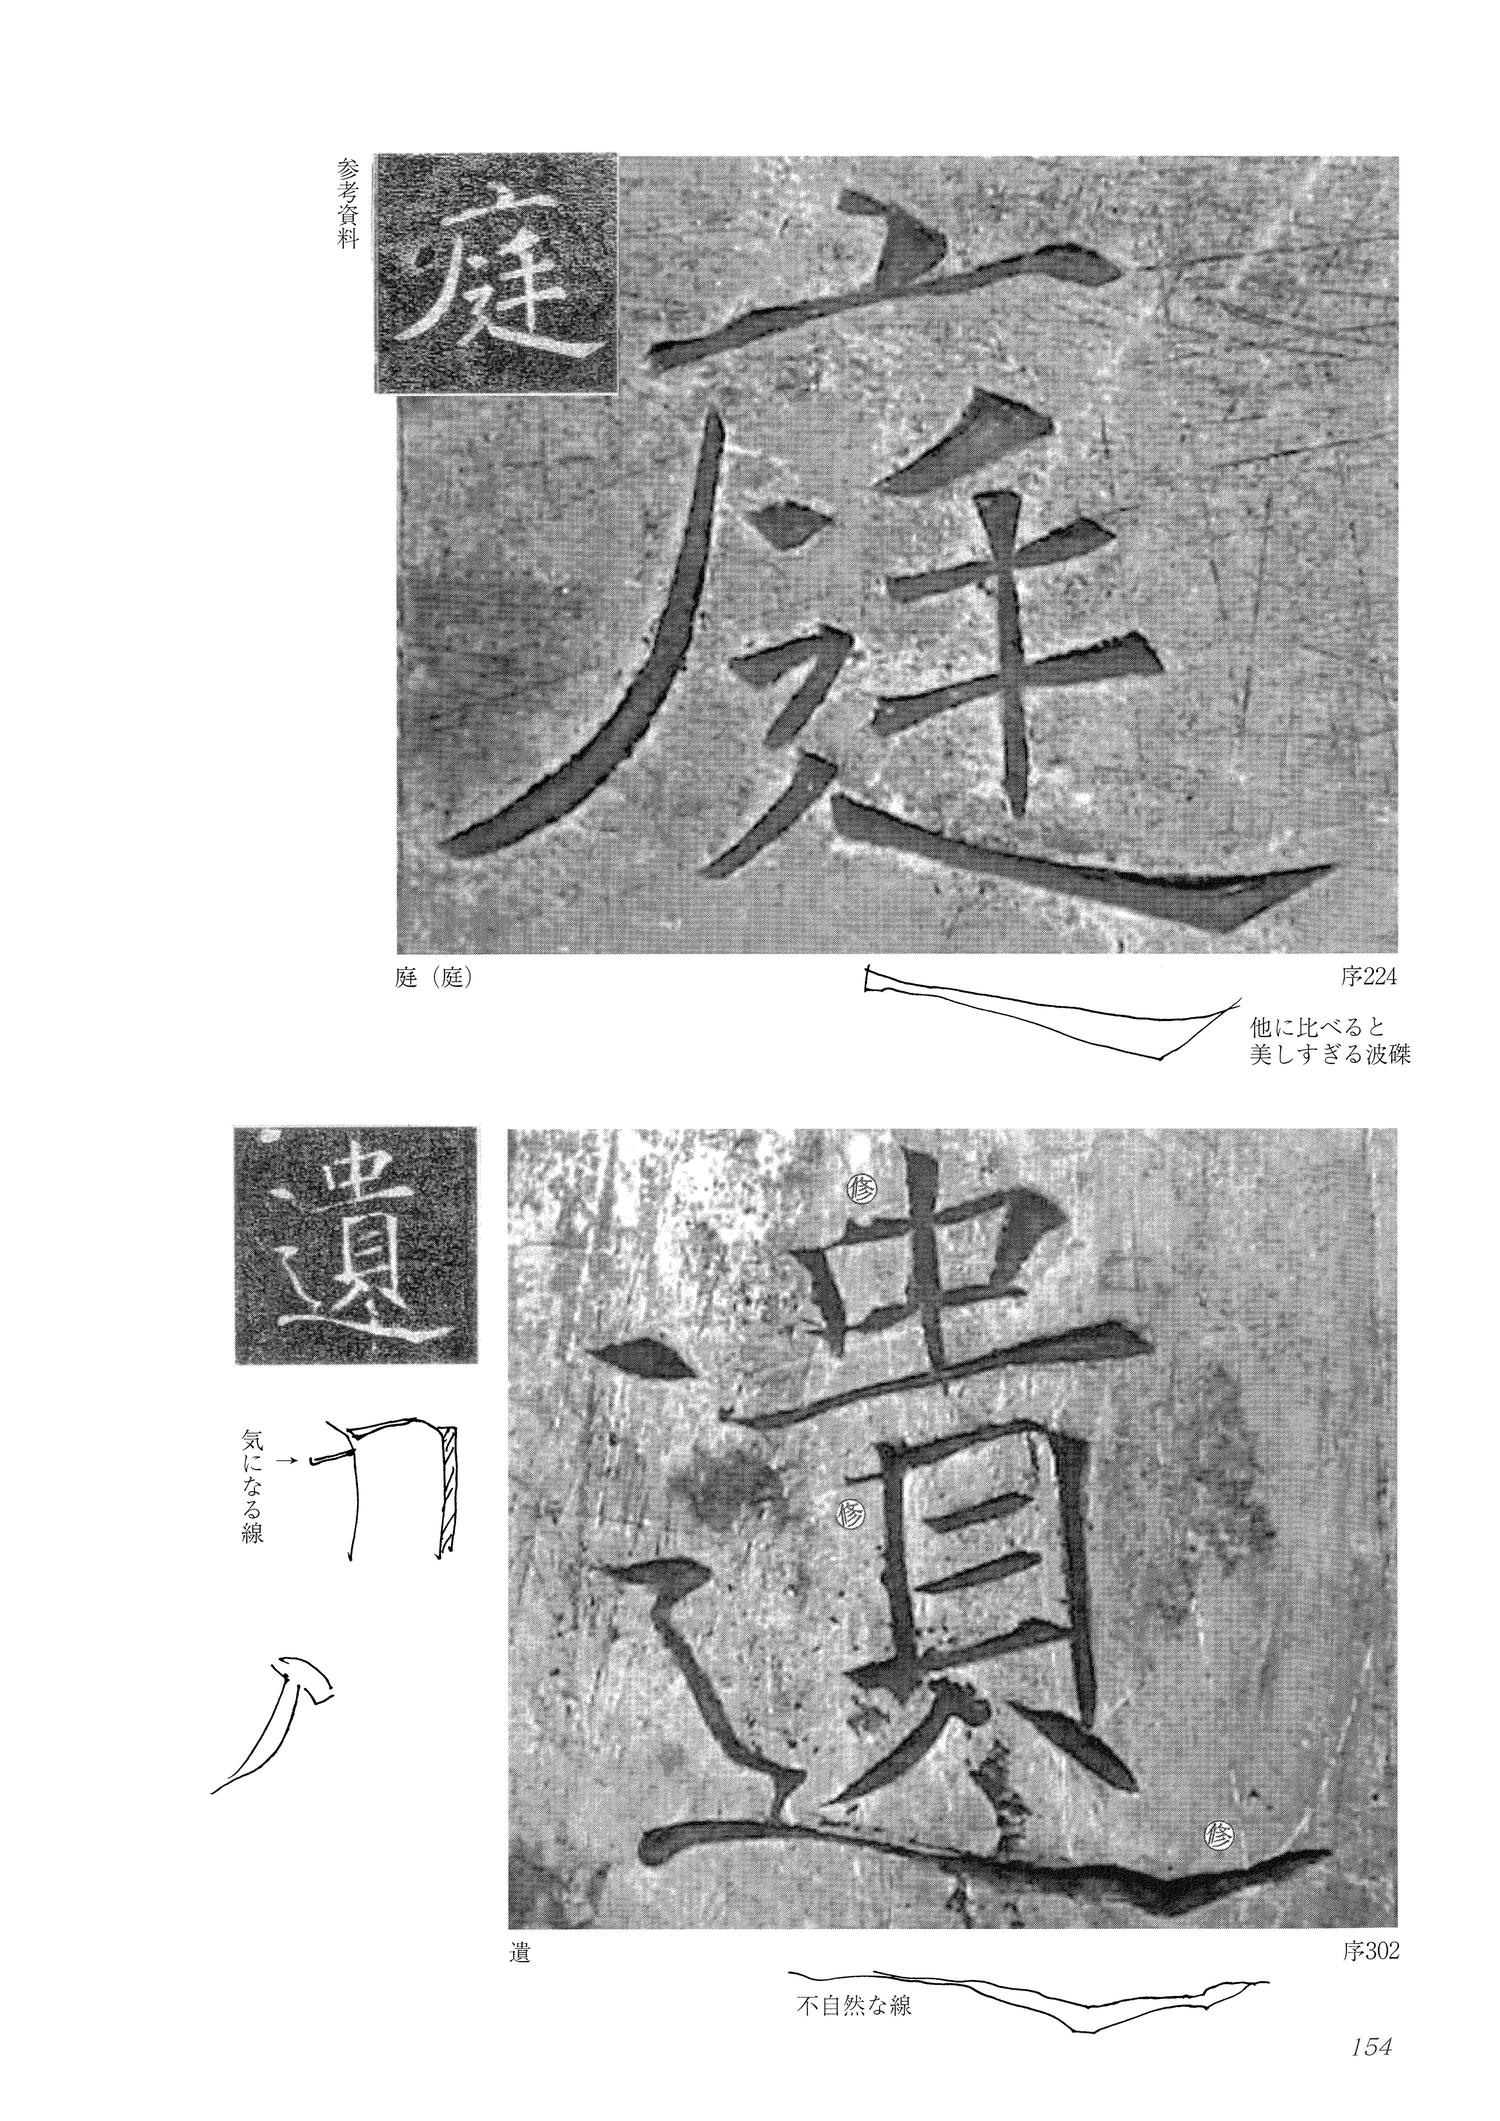 参考資料
庭
庭
庭（庭）
序224
他に比べると
美しすぎる波磔
遺
修
遺
修
気になる線
→
修
遺
序302
不自然な線
154